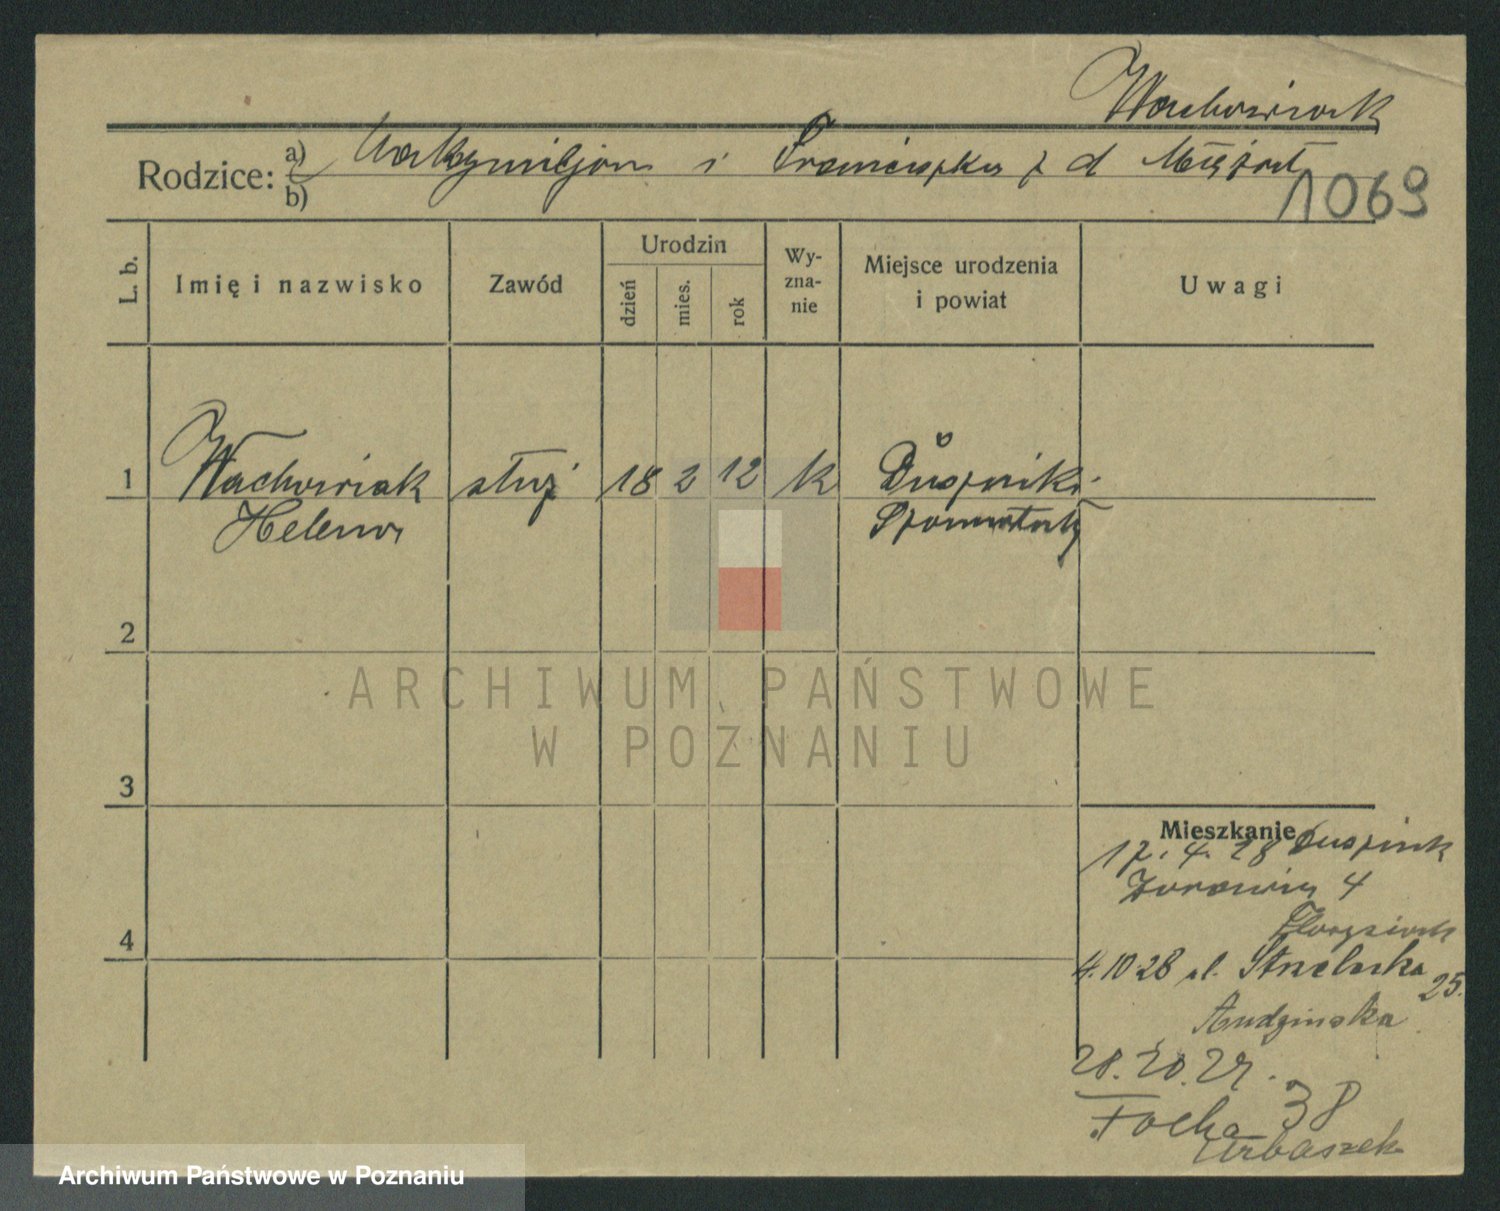 Wachowiak
Rodzice: a) Maksymiljan i Franciszka z d
b)
1069
L. b.
Imię i nazwisko
Zawód
Urodzin
dzień
mies.
rok
Wy-
zna-
nie
Miejsce urodzenia
i powiat
Uwagi
1 Wachowiak służ 18 2 12 k Duszniki
Helena Szamotuły
2
ARCHIWUM PAŃSTWOWE
W POZNANIU
3
Mieszkanie
17. 4. 28 Duszniki
Żurawia 4
4
4.10 28 ul. Strzelecka 25.
Rudzinska
28. 10. 29.
Focha 38
Urbaszek
Archiwum Państwowe w Poznaniu